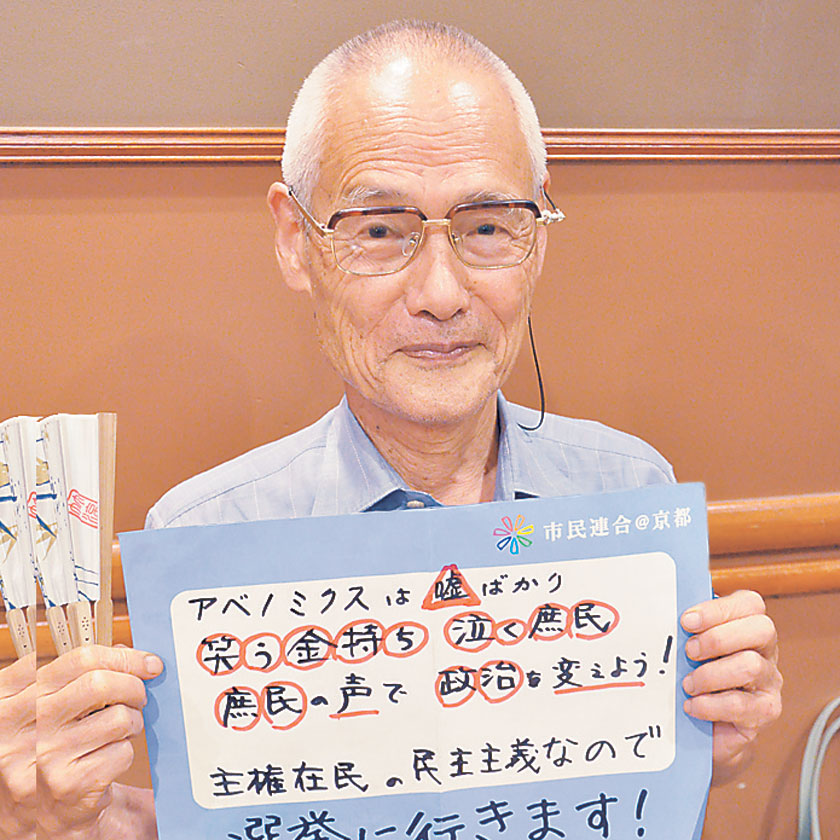 市民連合@京都
アベノミクスは嘘ばかり
笑う金持ち 泣く庶民
庶民の声で 政治を変えよう!
主権在民の民主主義なので
選挙に行きます!